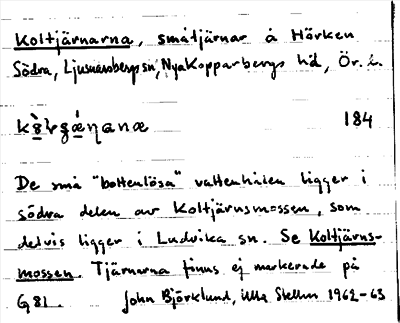 Koltjärnarna, småtjärnar å Hörken
Södra, Ljusnarsbergs sn, Nya Kopparbergs hd, Ör. l.
184
De små "bottenlösa" vattenhålen ligger i
södra delen av Koltjärnsmossen, som
delvis ligger i Ludvika sn. Se Koltjärns-
mossen. Tjärnarna finns ej markerade på
G 81. John Björklund, Ulla Stellin 1962-63